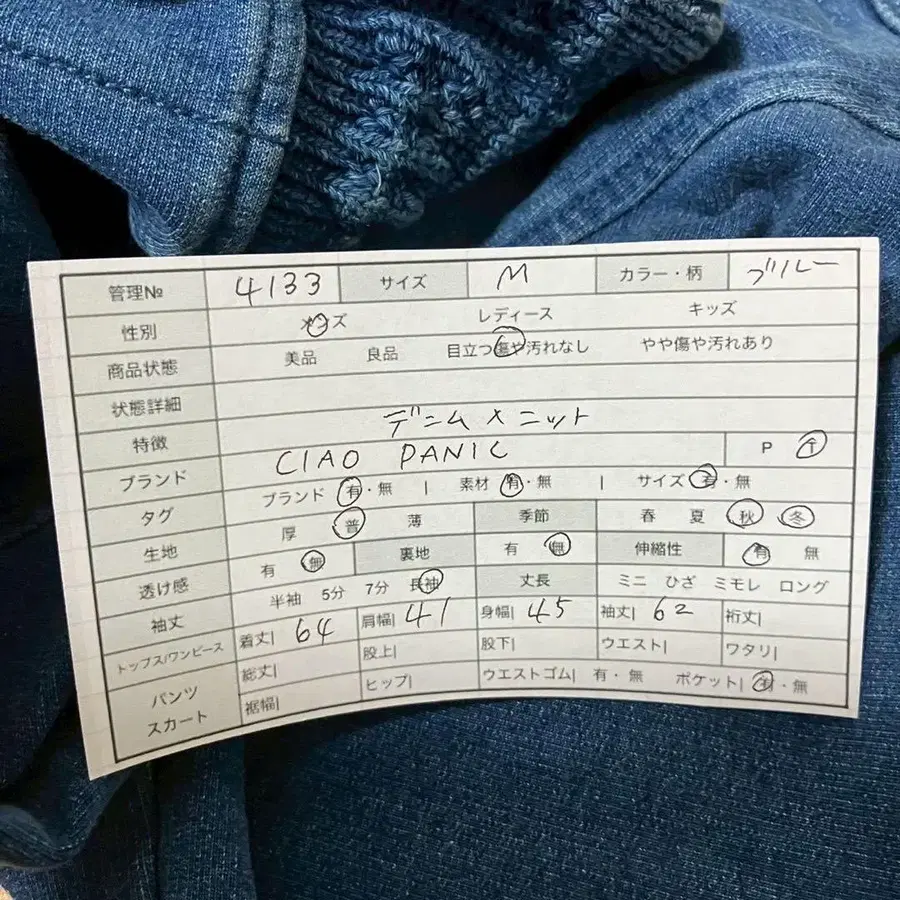 管理№ 4133 サイズ M カラー・柄 ブルー
性別 メンズ レディース キッズ
商品状態 美品 良品 目立つ傷や汚れなし やや傷や汚れあり
状態詳細
特徴 デニム×ニット
ブランド CIAO PANIC P T
タグ ブランド 有・無 | 素材 有・無 | サイズ 有・無
生地 厚 普 薄 季節 春 夏 秋 冬
透け感 有 無 裏地 有 無 伸縮性 有 無
袖丈 半袖 5分 7分 長袖 丈長 ミニ ひざ ミモレ ロング
トップス/ワンピース 着丈| 64 肩幅| 41 身幅| 45 袖丈| 62 裄丈|
パンツ スカート 総丈| 股上| 股下| ウエスト| ワタリ|
裾幅| ヒップ| ウエストゴム| 有・無 ポケット| 有・無